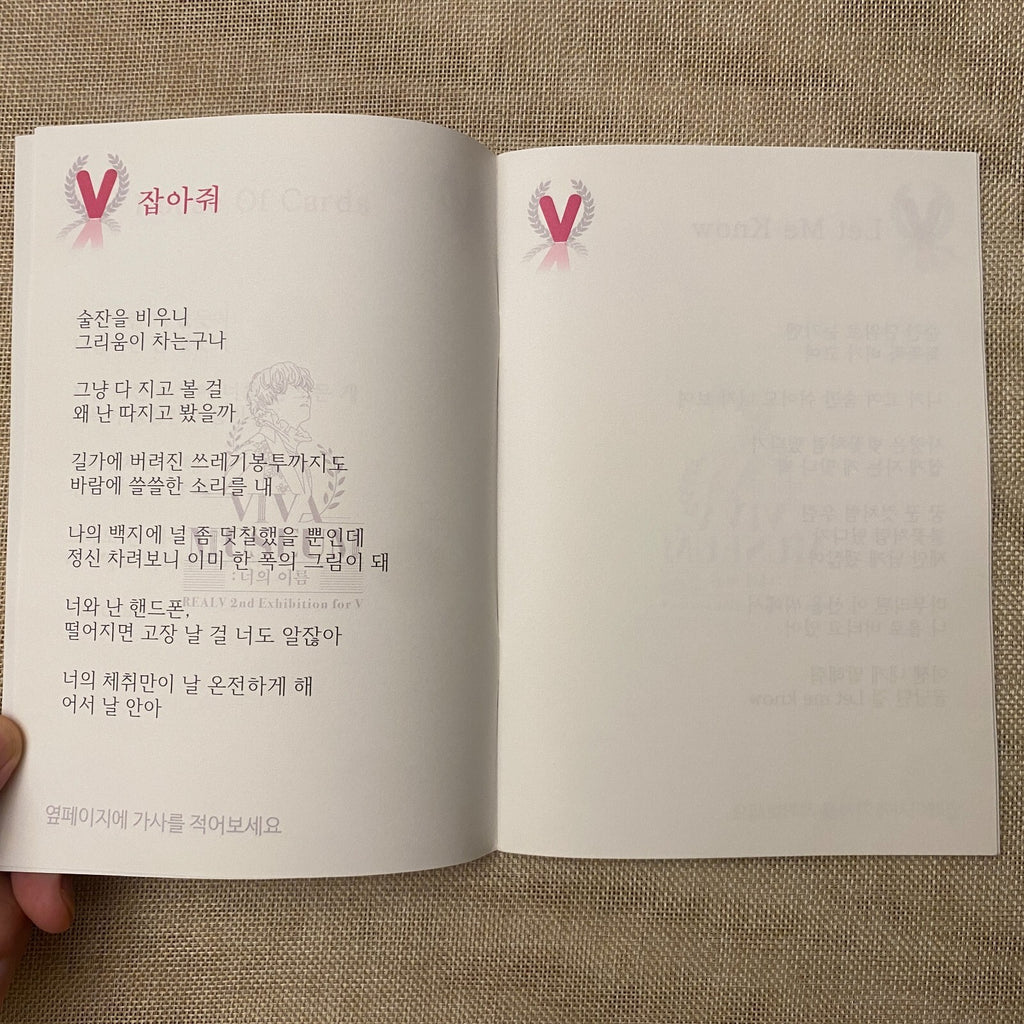 잡아줘
Of Cards
술잔을 비우니
그리움이 차는구나
그냥 다 지고 볼 걸
왜 난 따지고 봤을까
길가에 버려진 쓰레기봉투까지도
바람에 쓸쓸한 소리를 내
나의 백지에 널 좀 덧칠했을 뿐인데
정신 차려보니 이미 한 폭의 그림이 돼
너와 난 핸드폰,
떨어지면 고장 날 걸 너도 알잖아
너의 체취만이 날 온전하게 해
어서 날 안아
VIVA
MUSEUM
:너의 이름
REALV 2nd Exhibition for V
옆페이지에 가사를 적어보세요
V
V
Let Me Know